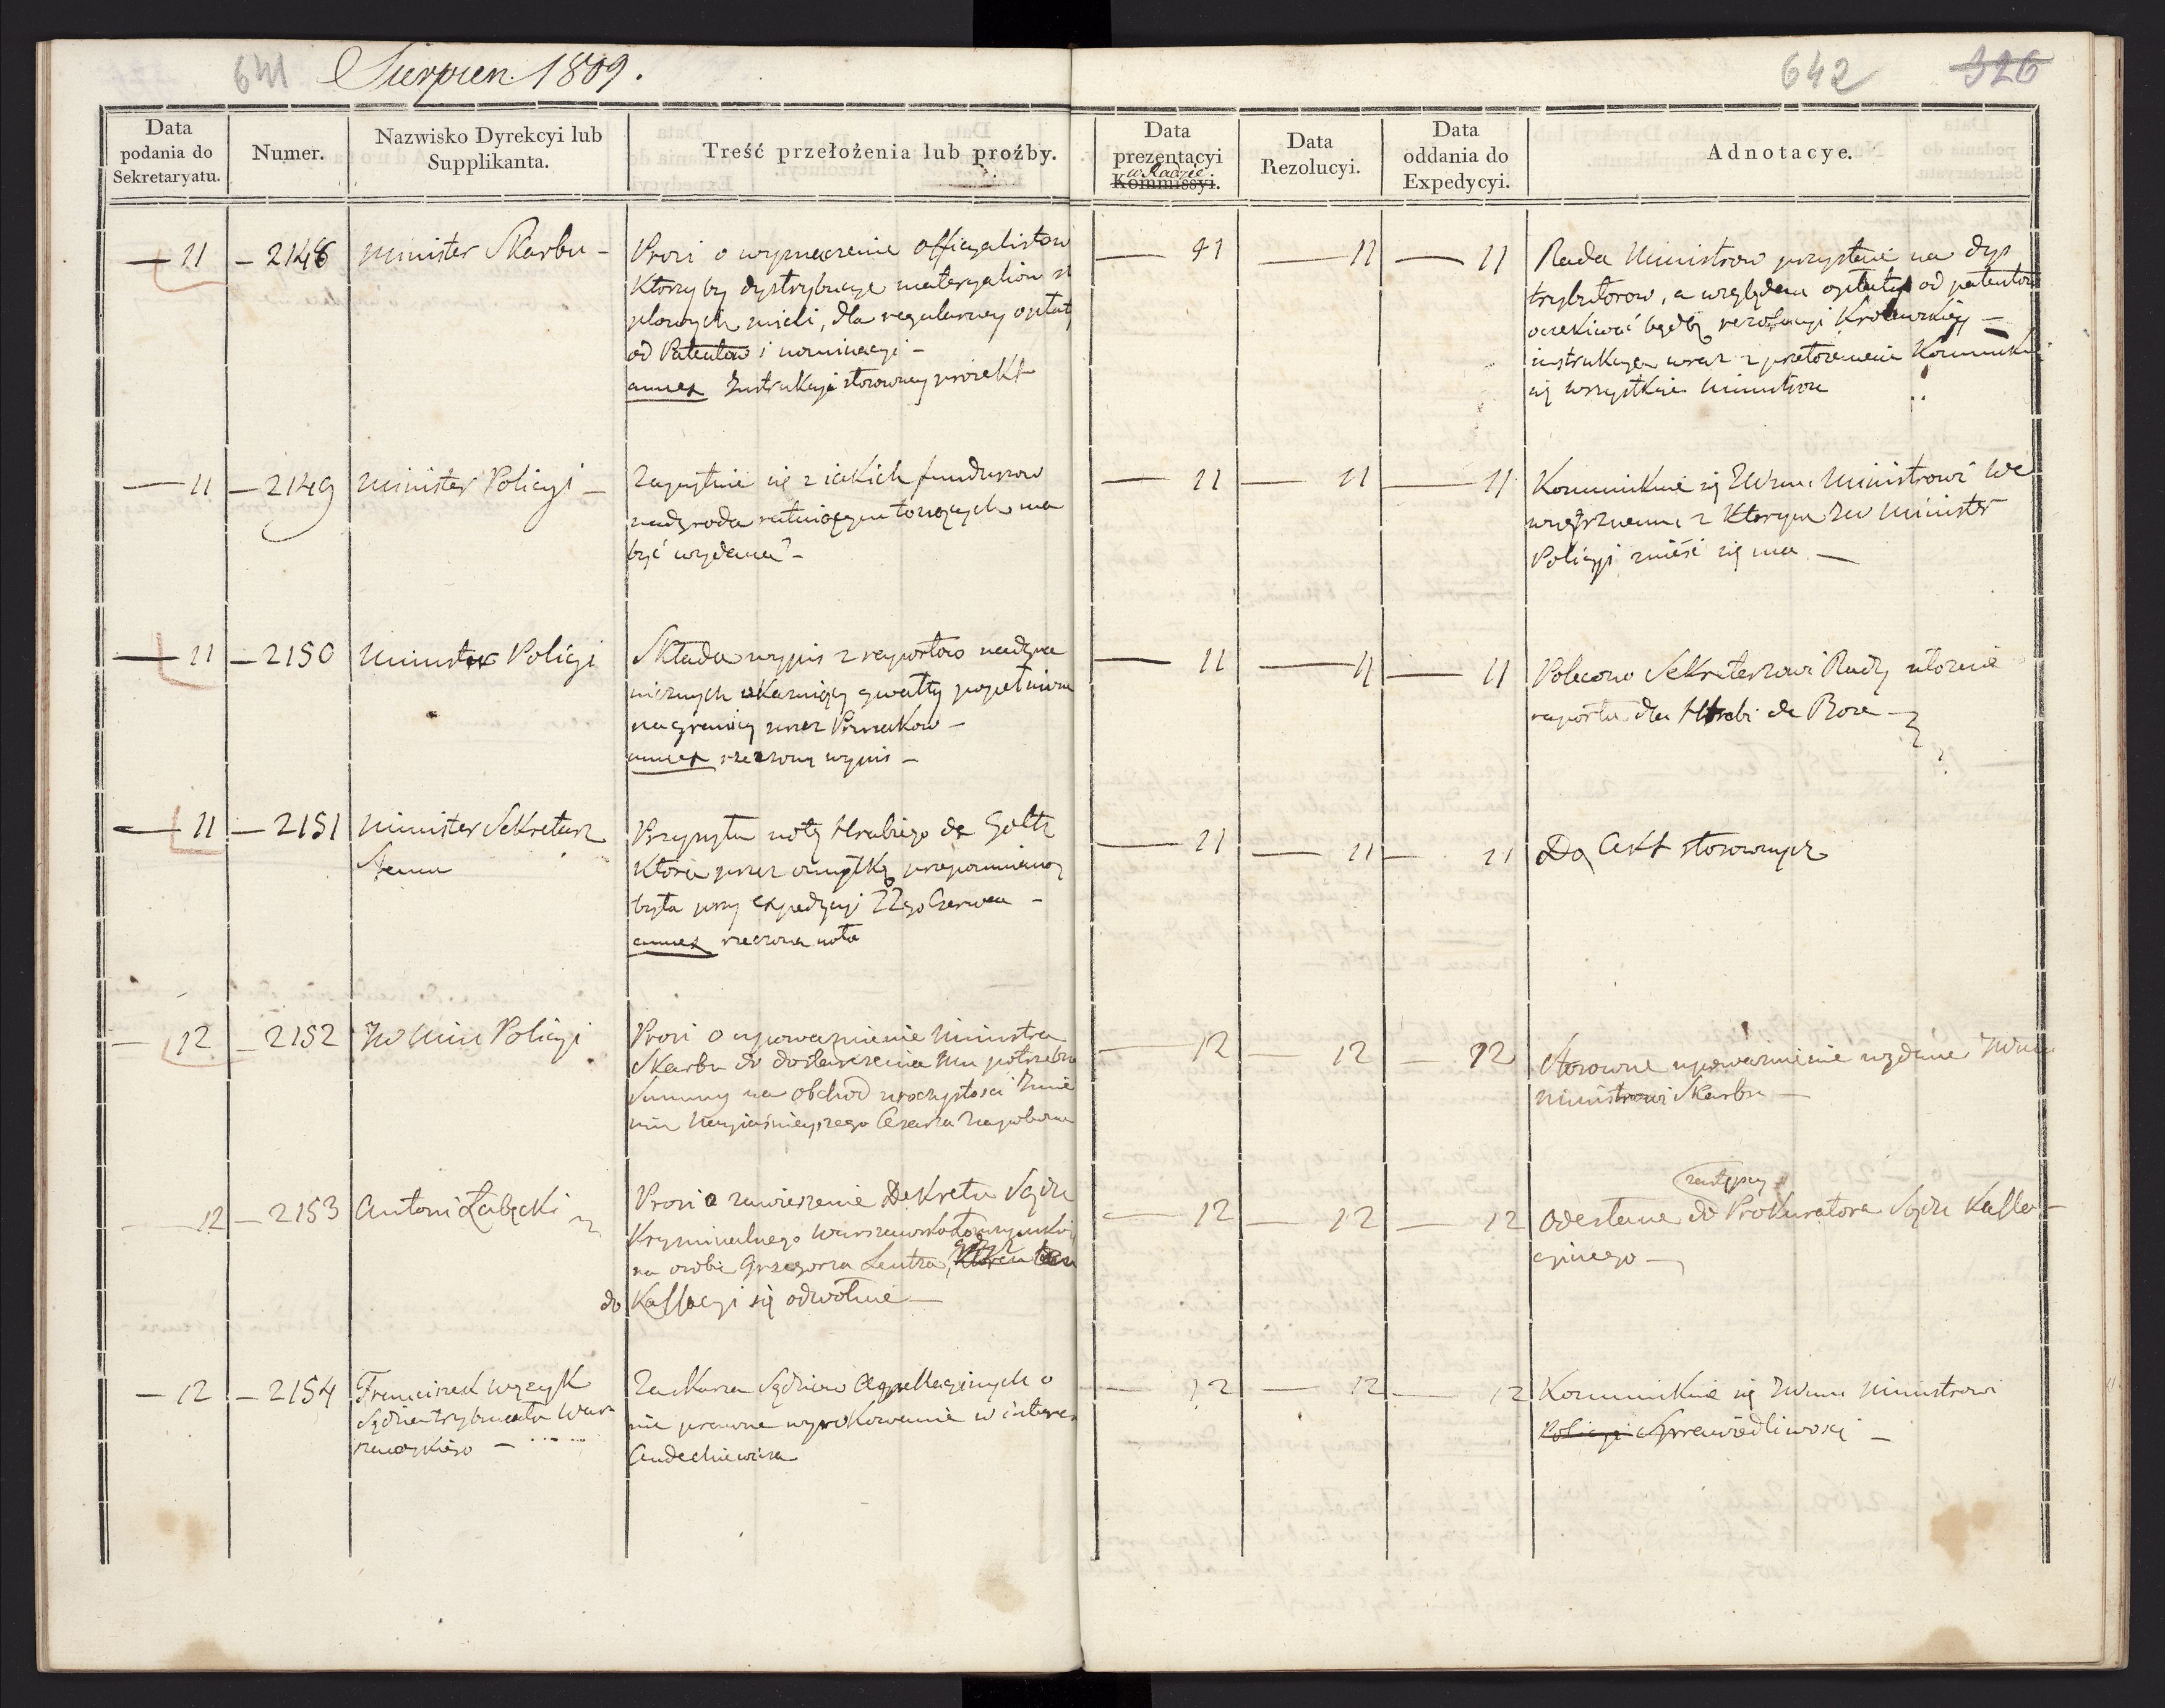 641 Sierpien 1809.
642 326
Data podania do Sekretaryatu.
Numer.
Nazwisko Dyrekcyi lub Supplikanta.
Treść przełożenia lub proźby.
Data prezentacyi w Radzie Kommissyi.
Data Rezolucyi.
Data oddania do Expedycyi.
Adnotacye.
— 11 — 2148 Minister Skarbu —
Prosi o wyznaczenie officyalistow
Ktorzy by dystrybucye materyałow st
plowych mieli, dla regularney opłaty
od Patentow i nominacyi —
annex Instrukcyi stosowney proiekt
— 11 — 11 — 11
Rada Ministrow przystaie na dys
trybutorow, a względem opłaty od patentow
oczekiwać będzie rezolucyi Krolewskiey —
instrukcya wraz z
się wszystkim Ministrom
— 11 — 2149 Minister Policyi —
Zapytuie się z iakich funduszow
nadgroda ratuiącym tonących ma
być wydana? —
— 11 — 11 — 11
Kommunikuie się JWmu Ministrowi We
wnętrznemu z Ktorym JW Minister
Policyi znieść się ma —
— 11 — 2150 Minister Policyi
Składa wypis z raportow nadgra
nicznych gwałty popełnione
na granicy przez Prusakow —
annex rzeczony wypis —
— 11 — 11 — 11
Polecono Sekretarzowi Rady ułożenie
raportu dla Hrabi de Bose —
— 11 — 2151 Minister Sekretarz
Stanu
Przysyła notę Hrabiego de Goltz
Ktora przez omyłkę przepomniana
była przy expedycyi 22go Czerwca —
annex rzeczona nota
— 11 — 11 — 11
Do Akt stosownych
— 12 — 2152 JW Min Policyi
Prosi o upoważnienie Ministra
Skarbu do dostarczenia mu potrzebn
Summy na obchod uroczystosci Imie
nin Nayiaśnieyszego Cesarza Napoleona
— 12 — 12 — 12
Stosowne upoważnienie wydane JWmu
Ministrowi Skarbu —
— 12 — 2153 Antoni Łabęcki
Prosi o zawieszenie Dekretu Sądu
Kryminalnego
na osobie Grzegorza Lentza, gdyż Ktoren ten
do Kassacyi się odwołuie —
— 12 — 12 — 12
zastępcy
Odesłane do Prokuratora Sądu Kassa-
cyinego —
— 12 — 2154 Franciszek Wężyk
Sędzia trybunału War
szawskiego —
Zaskarża Sędziow Appellacyinych o
nie prawne wyrokowanie w interes
— 12 — 12 — 12
Kommunikuie się JWmu Ministrowi
Policyi Sprawiedliwosci —